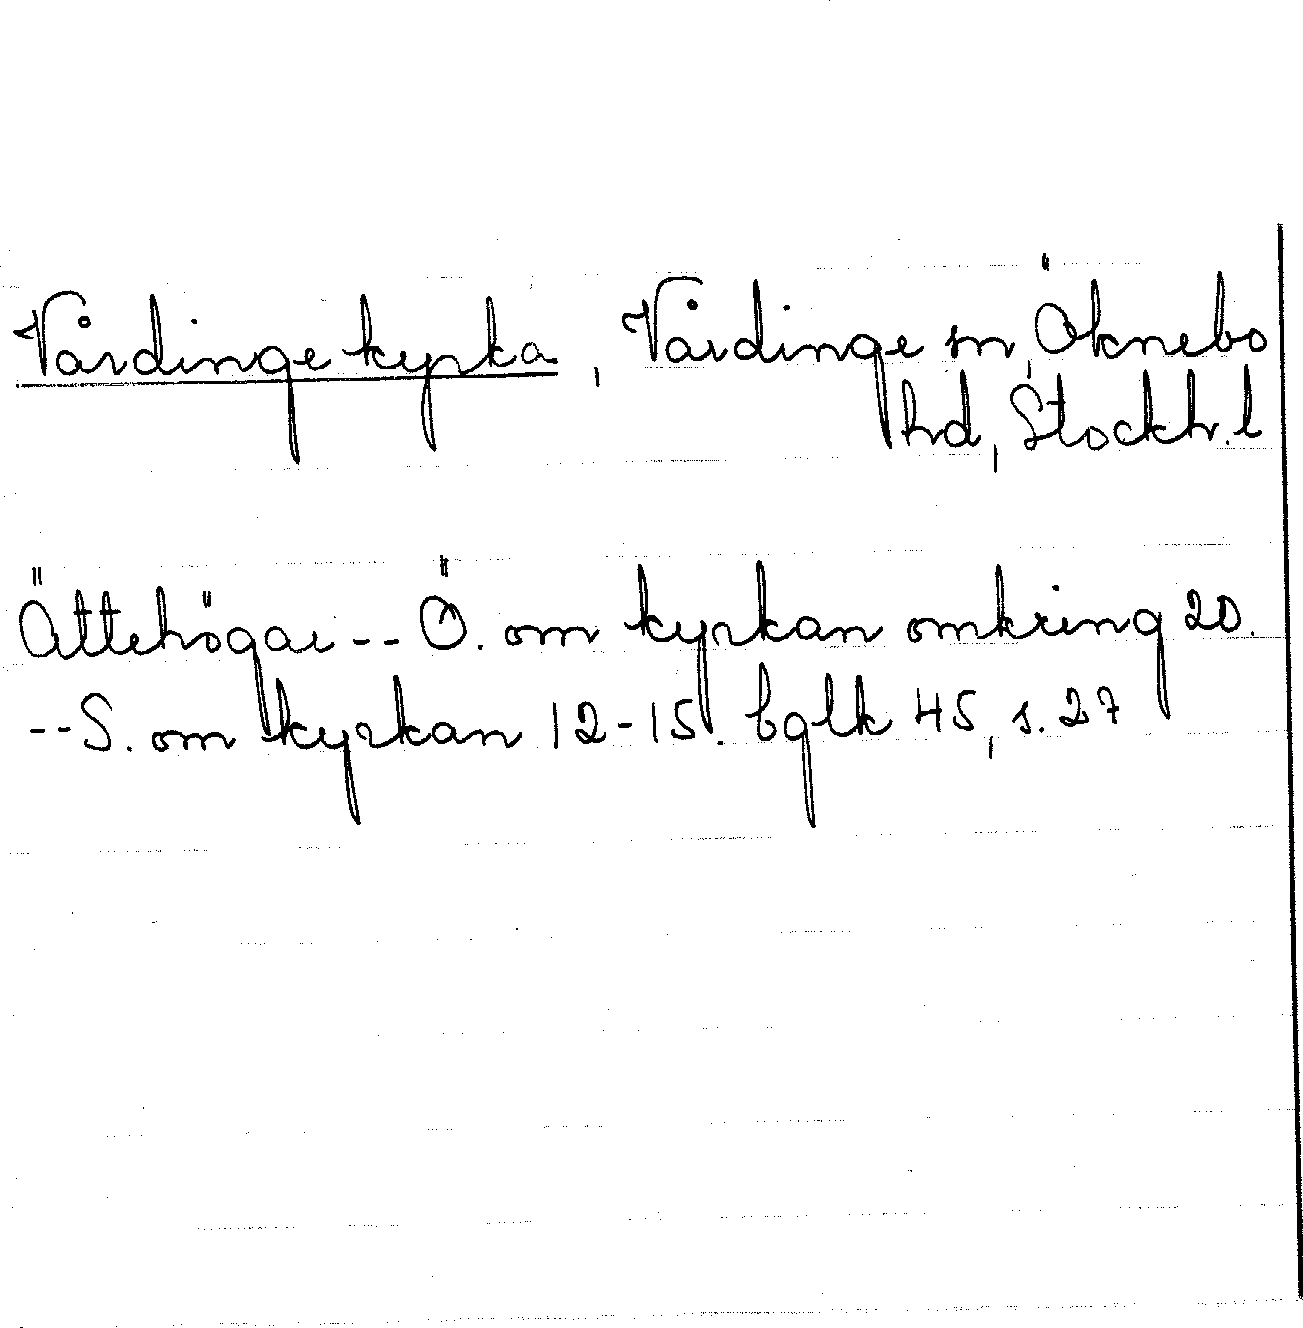 Vårdinge kyrka, Vårdinge sn, Öknebo
hd, Stockh. l
Ättehögar -- Ö. om kyrkan omkring 20.
-- S. om kyrkan 12-15. bglk 45, s. 27